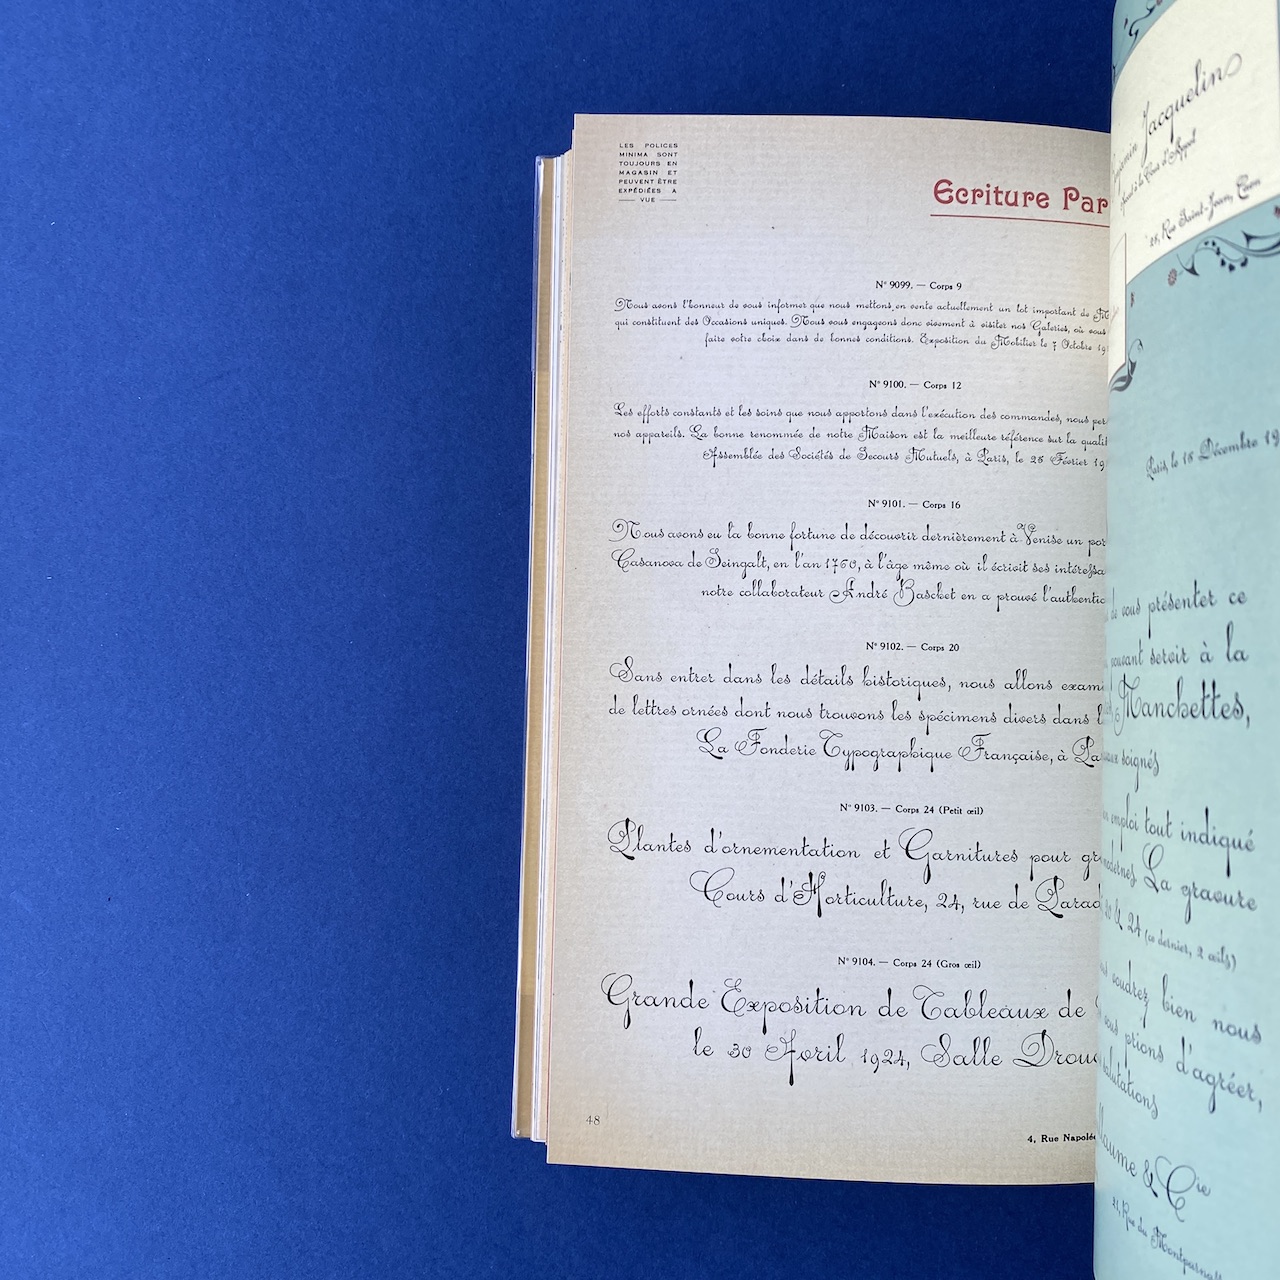 LES POLICES
MINIMA SONT
TOUJOURS EN
MAGASIN ET
PEUVENT ÊTRE
EXPÉDIÉES A
VUE
Ecriture Par
N° 9099. — Corps 9
Nous avons l'honneur de vous informer que nous mettons en vente actuellement un lot important de
qui constituent des Occasions uniques. Nous vous engageons donc vivement à visiter nos Galeries, où vous
faire votre choix dans de bonnes conditions. Exposition du Mobilier le 7 Octobre 19
N° 9100. — Corps 12
Les efforts constants et les soins que nous apportons dans l'exécution des commandes, nous per
nos appareils. La bonne renommée de notre Maison est la meilleure référence sur la qualit
Assemblée des Sociétés de Secours Mutuels, à Paris, le 26 Février 19
N° 9101. — Corps 16
Nous avons eu la bonne fortune de découvrir dernièrement à Venise un por
Casanova de Seingalt, en l'an 1760, à l'âge même où il écrivit ses intéressa
notre collaborateur André Baschet en a prouvé l'authentic
N° 9102. — Corps 20
Sans entrer dans les détails historiques, nous allons exami
de lettres ornées dont nous trouvons les spécimens divers dans l
La Fonderie Typographique Française, à Pa
N° 9103. — Corps 24 (Petit œil)
Plantes d'ornementation et Garnitures pour gr
Cours d'Horticulture, 24, rue de Parad
N° 9104. — Corps 24 (Gros œil)
Grande Exposition de Tableaux de
le 30 Avril 1924, Salle Drouo
48
4, Rue Napolé
Jacquelin
à la Cour d'Appel
28, Rue Saint-Jean, Caen
Paris, le 16 Décembre 19
de vous présenter ce
pouvant servir à la
Manchettes,
soignés
emploi tout indiqué
modernes La gravure
20 & 24 (ce dernier, 2 œils)
voudrez bien nous
vous prions d'agréer,
salutations
llaume & Cie
21, Rue du Montparna